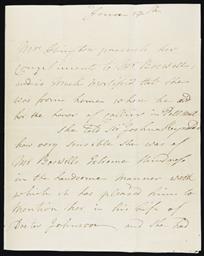 Mrs Abington presents her
Compliments to Mr Boswell
and is much mortified that she
was from home when he did
her the honor of calling in Pall Mall
she told Sir Joshua Reynolds
how very sensible she was of
Mr Boswells Extreme Kindness
in the handsome manner with
which it has pleased him to
mention her in his Life of
Doctor Johnson and she had